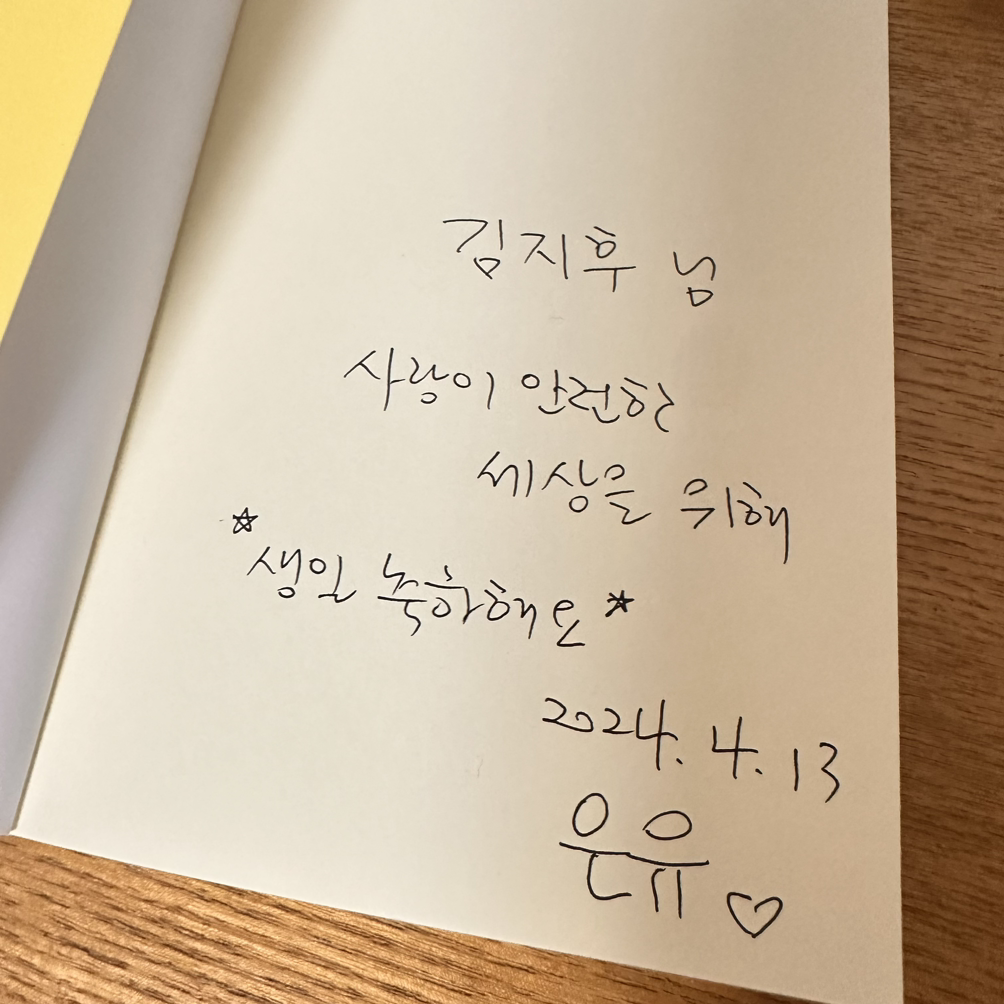 김지후 님
사랑이 안전한
세상을 위해
☆생일 축하해요☆
2024. 4. 13
은유♡